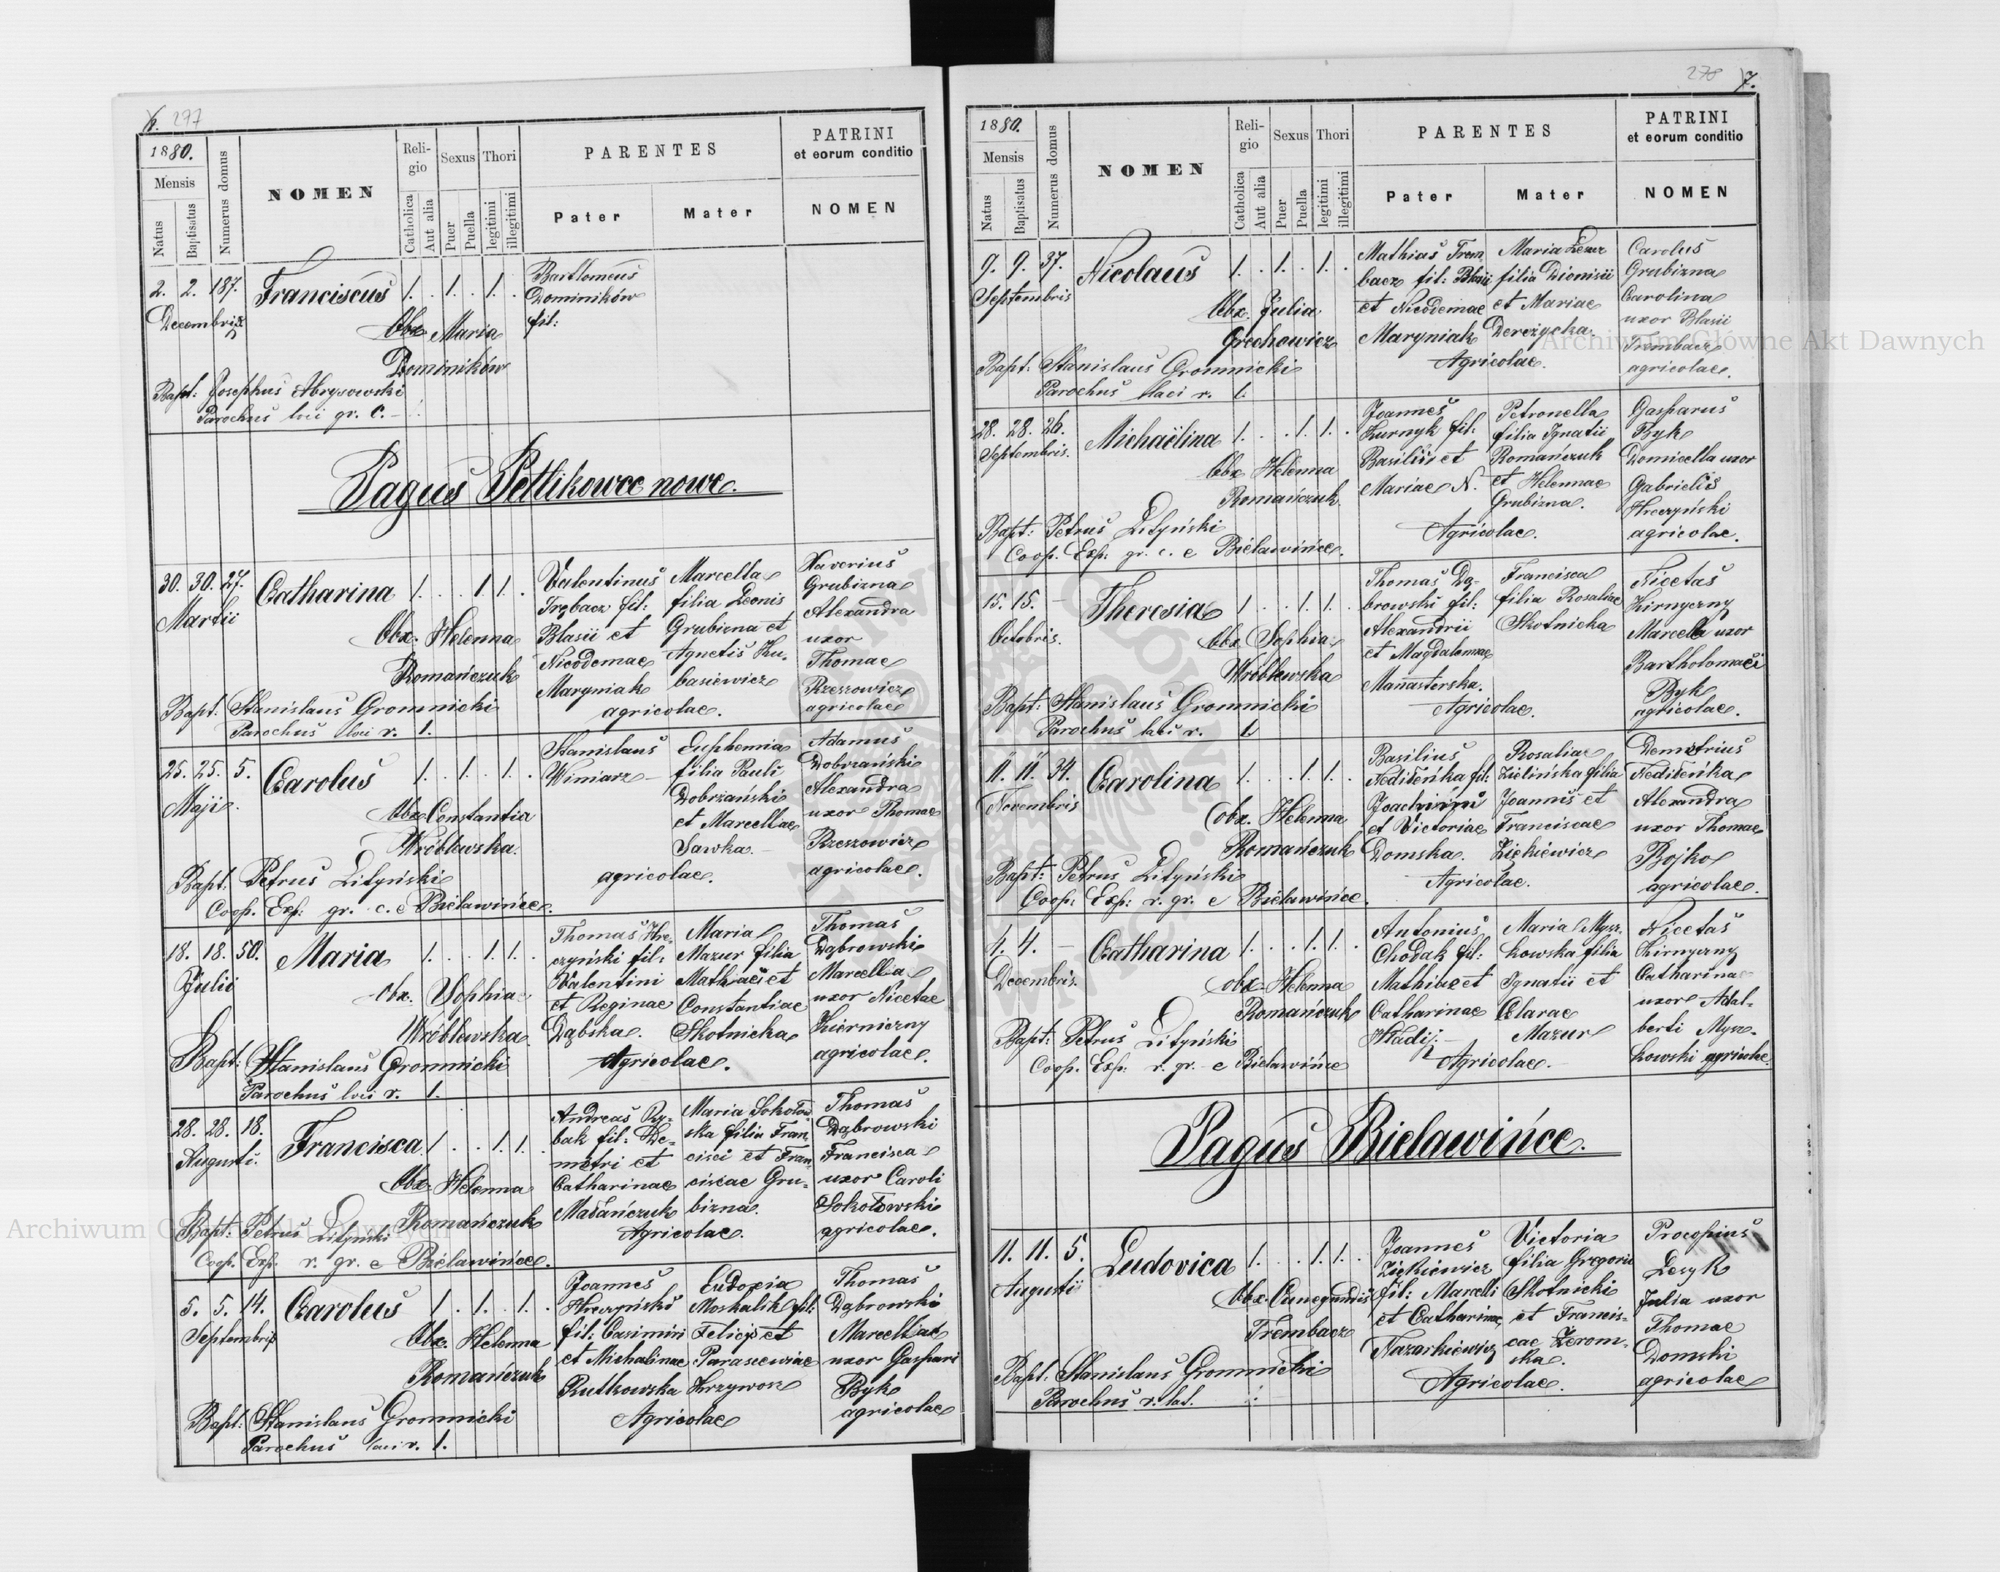 6. 277
1880.
Mensis
Natus
Baptisatus
Numerus domus
NOMEN
Reli-
gio
Catholica
Aut alia
Sexus
Puer
Puella
Thori
legitimi
illegitimi
PARENTES
Pater
Mater
PATRINI
et eorum conditio
NOMEN
2. 2. 187. Franciscus 1. . 1. . 1. .
Decembris
Obx Maria
Dominików
Bartlomeus
Dominików
fil:
Bapt: Josephus Abrysowski
Parochus loci gr. c.
Pagus Petlikowce nowe.
30. 30. 27. Catharina 1. . . 1 1. .
Martii
Obx. Helenna
Romańczuk
Valentinus
Trębacz fil:
Blasii et
Nicodemae
Maryniak
Marcella
filia Leonis
Grubizna et
Agnetis Ku-
basiewicz
agricolae.
Xaverius
Grubizna
Alexandra
uxor
Thomae
Rzeszowicz
agricolae
Bapt: Stanislaus Gromnicki
Parochus loci r. l.
25. 25. 5. Carolus 1. . 1. . 1. .
Maji.
Obx Constantia
Wróblewska.
Stanislaus
Winiarz
Euphemia
filia Pauli
Dobrzański
et Marcellae
Sawka.
agricolae.
Adamus
Dobrzański
Alexandra
uxor Thomae
Rzeszowicz
agricolae.
Bapt: Petrus Lityński
Coop. Exp: gr. c. e Bielawińce.
18. 18. 50. Maria 1. . . 1. 1. .
Julii
Obx. Sophia
Wróblewska.
Thomas Hre-
czyński fil:
Valentini
et Reginae
Dąbska.
Maria
Mazur filia
Mathaei et
Constantiae
Skotnicka
Agricolae.
Thomas
Dąbrowski
Marcella
uxor Nicetae
Kierniczny
agricolae.
Bapt: Stanislaus Gromnicki
Parochus loci r. l.
28. 28. 18. Francisca 1. . . 1. 1. .
Augusti.
Obx Helenna
Romańczuk
Andreas Ry-
bak fil: De-
metri et
Catharinae
Madańczuk
Maria Sokołow
ska filia Fran
cisci et Fran
ciscae Gru-
bizna.
Agricolae.
Thomas
Dąbrowski
Francisca
uxor Caroli
Sokołowski
agricolae.
Bapt: Petrus Lityński
Coop. Exp: r. gr. e Bielawińce.
5. 5. 14. Carolus 1. . 1. . 1. .
Septembris
Obx. Helenna
Romańczuk
Joannes
Hreczyński
fil: Casimiri
et Michalinae
Rutkowska
Eudoxia
Moskalik fil:
Felicis et
Parascewiae
Krzywon
Agricolae
Thomas
Dąbrowski
Marcellae
uxor Gaspari
Byk
agricolae
Bapt: Stanislaus Gromnicki
Parochus loci r. l.
278 7.
1880.
Mensis
Natus
Baptisatus
Numerus domus
NOMEN
Reli-
gio
Catholica
Aut alia
Sexus
Puer
Puella
Thori
legitimi
illegitimi
PARENTES
Pater
Mater
PATRINI
et eorum conditio
NOMEN
9. 9. 37. Nicolaus 1. . 1. . 1. .
Septembris
Obx. Julia
Grechowicz
Mathias Trem
bacz fil: Blasii
et Nicodemae
Maryniak
filia Dionisii
et Mariae
Dereżycka
Agricolae.
Carolus
Grubizna
Carolina
uxor Blasii
Trembacz
agricolae.
Bapt: Stanislaus Gromnicki
Parochus loci r. l.
28. 28. 26. Michaëlina 1. . . 1. 1. .
Septembris.
Obx Helenna
Romańczuk.
Joannes
Kurnyk fil:
Basilii et
Mariae N.
Petronella
filia Ignatii
Romańczuk
et Helennae
Grubizna.
Agricolae.
Gasparus
Byk
Domicella uxor
Gabrielis
Hreczyński
agricolae.
Bapt: Petrus Lityński
Coop. Exp: gr. c. e Bielawińce.
15. 15. — Theresia 1. . . 1. 1. .
Octobris.
Obx Sophia
Wróblewska
Thomas Dą-
browski fil:
Alexandrii
et Magdalenae
Manasterska.
Francisca
filia Rosaliae
Skotnicka
Agricolae.
Nicetas
Kirnyczny
Marcella uxor
Bartholomaei
Byk
agricolae.
Bapt: Stanislaus Gromnicki
Parochus loci r. l.
11. 11. 34. Carolina 1. . . 1. 1. .
Novembris
Obx. Helenna
Romańczuk
Basilius
Fedileńka fil:
Joachimi
et Victoriae
Domska.
Rosaliae
Zielińska filia
Joannis et
Franciscae
Ziękiewicz
Agricolae.
Demetrius
Fedileńka
Alexandra
uxor Thomae
Bojko
agricolae.
Bapt: Petrus Lityński
Coop. Exp: r. gr. e Bielawińce.
4. 4. — Catharina 1. . . 1. 1. .
Decembris.
obx. Helenna
Romańczuk
Antonius
Chodak fil:
Mathiae et
Catharinae
Hladij.
Maria Mysz-
kowska filia
Ignatii et
Clarae
Mazur
Agricolae.
Nicetas
Kirnyczny
Catharinae
uxor Adal-
berti Mysz-
kowski agricolae.
Bapt: Petrus Lityński
Coop. Exp: r. gr. e Bielawińce
Pagus Bielawińce.
11. 11. 5. Ludovica 1. . . 1. 1. .
Augusti
Obx. Cunegundis
Trembacz
Joannes
Ziękiewicz
fil: Marcelli
et Catharinae
Nazarkiewicz
Victoria
filia Gregorii
Skotnicki
et Francis-
cae Żerom-
ska.
Agricolae.
Procopius
Lesyk
Julia uxor
Thomae
Domski
agricolae
Bapt: Stanislaus Gromnicki
Parochus r. lat.
Archiwum Główne Akt Dawnych